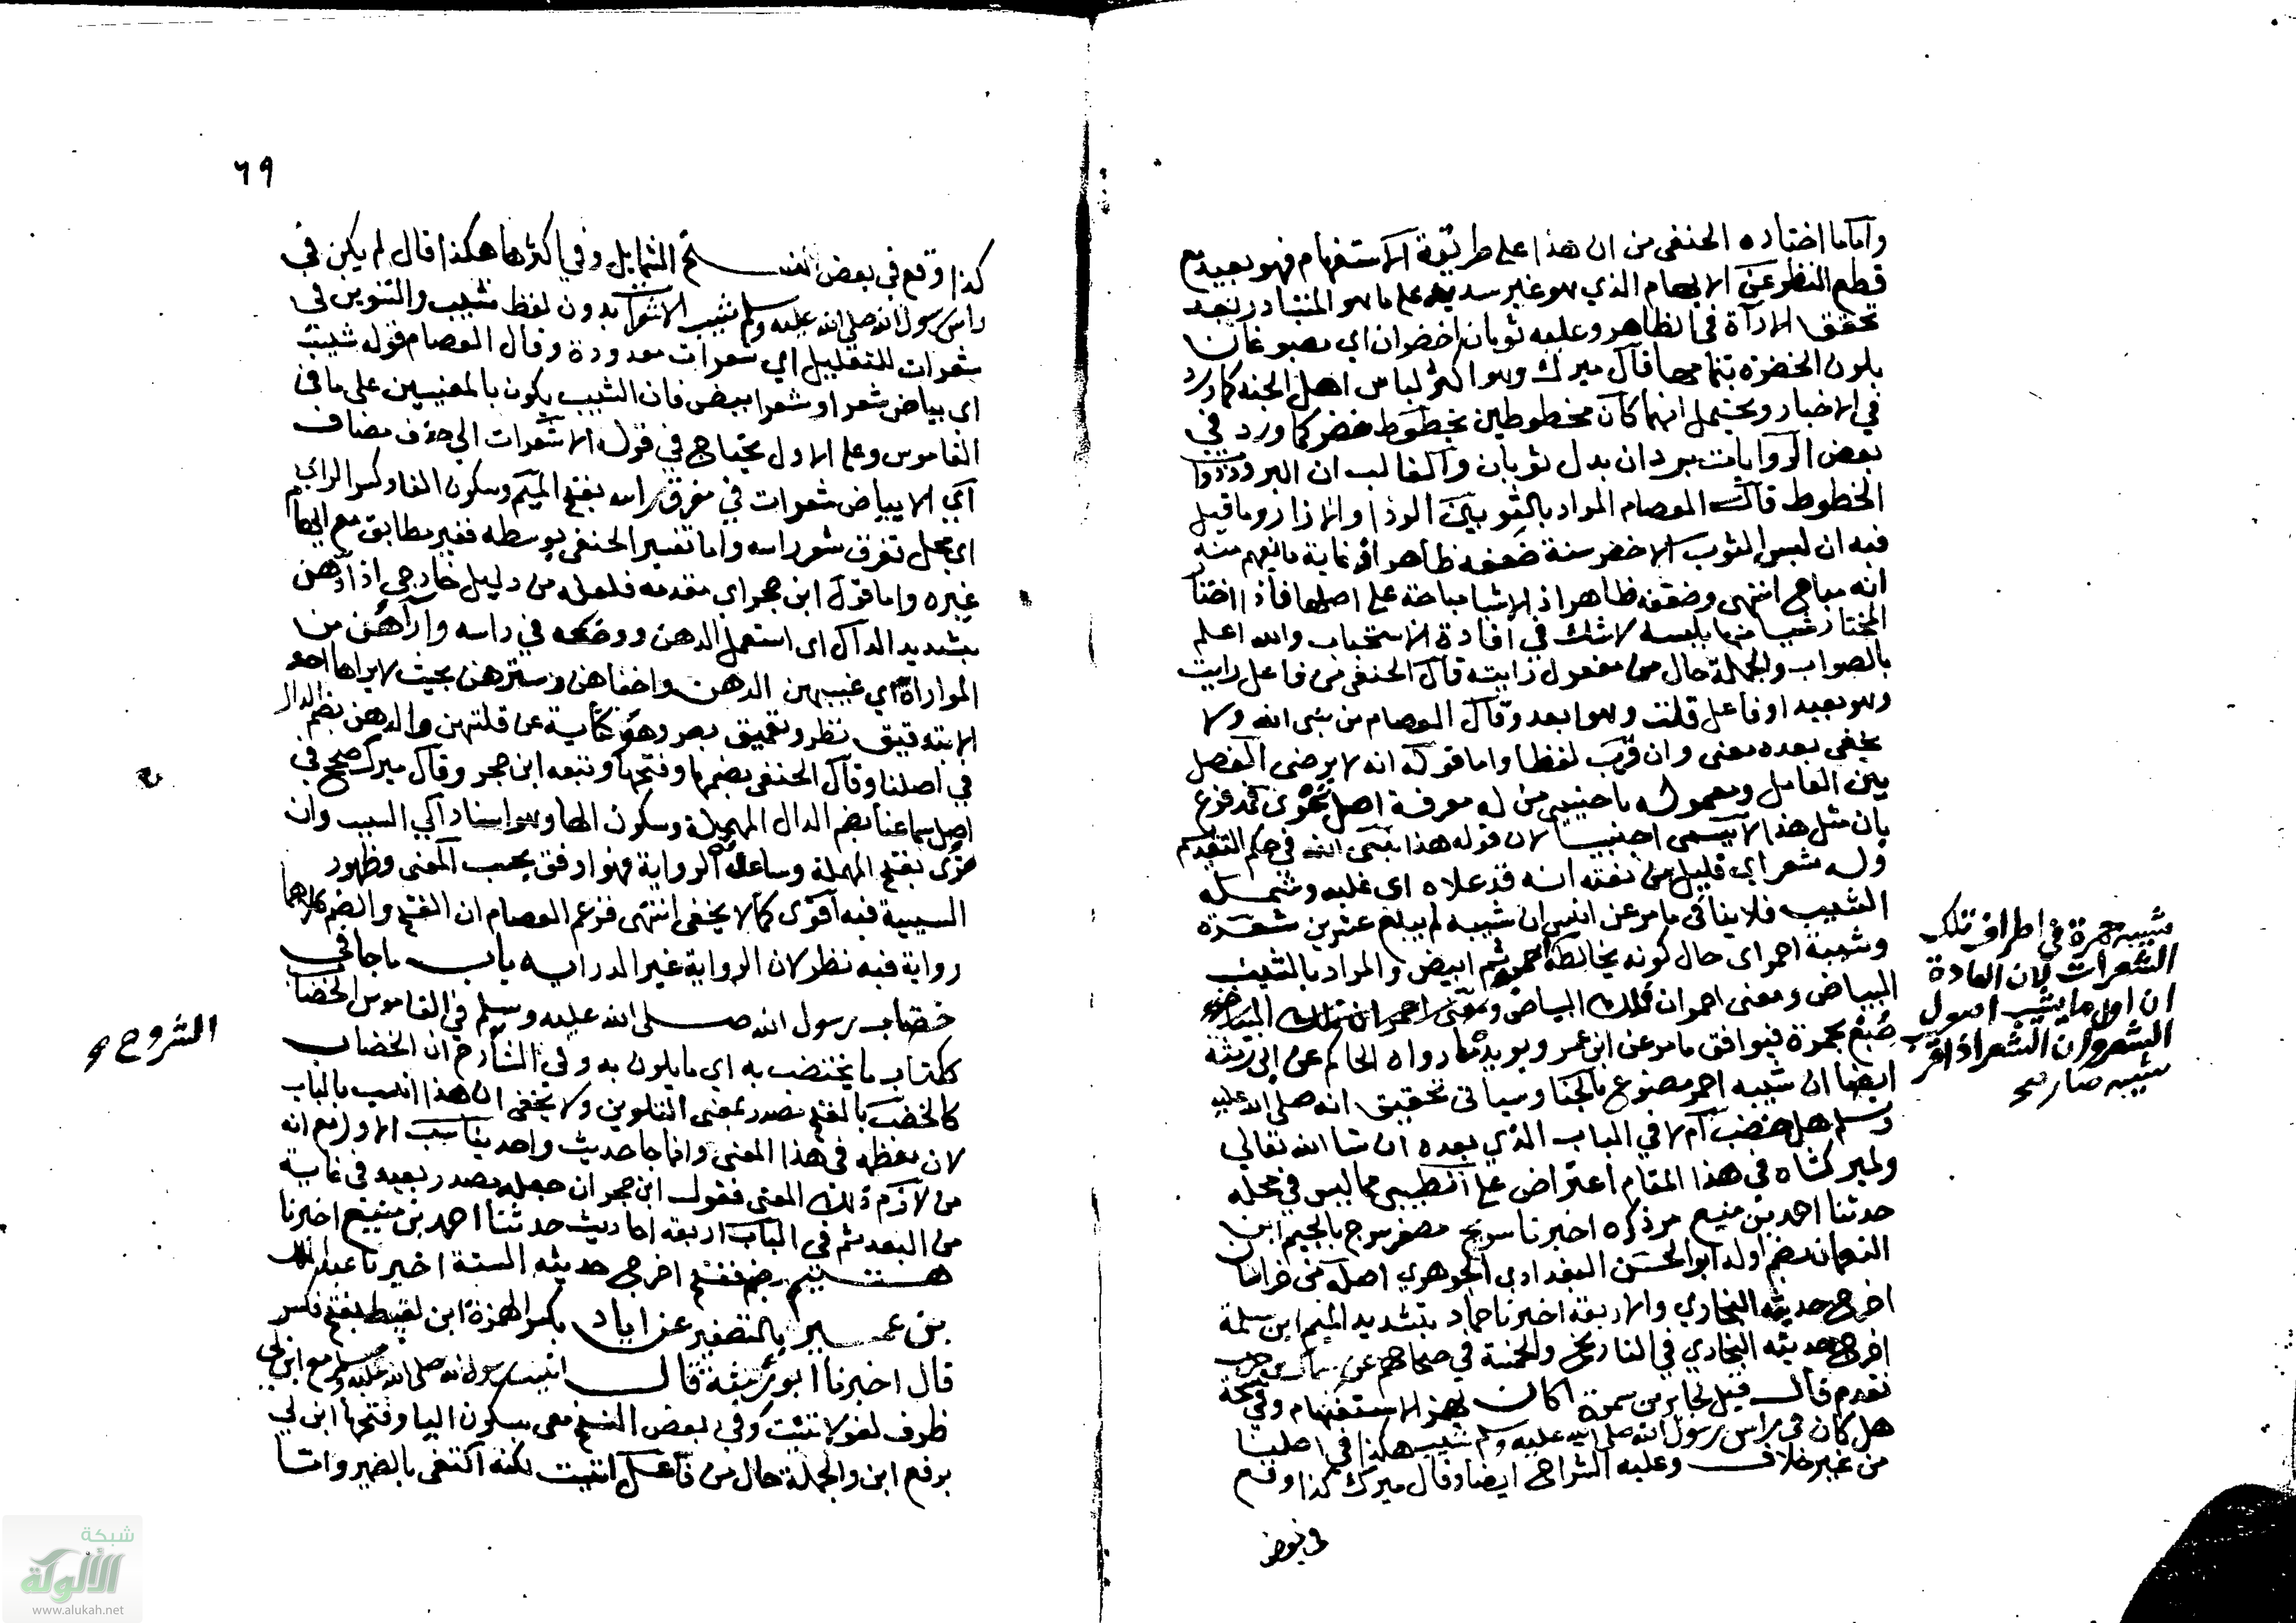 واما ما اختاره الحنفي من ان هذا على طريقة الاستفهام فهو بعيد مع
قطع النظر عن الابهام الذي هو غير سديد على ما هو المتبادر بعد
تحقق الارآة في الظاهر وعليه ثوبان اخضران اي مصبوغان
بلون الخضرة بتمامها قال ميرك وهو اكثر لباس اهل الجنة كما ورد
في الاخبار ويحتمل انهما كانا مخطوطين بخطوط خضر كما ورد في
بعض الروايات بردان بدل ثوبان والغالب ان البرود ذوا
الخطوط قال العصام المراد بالثوبين الردا والازار وما قيل
فيه ان لبس الثوب الاخضر سنة ضعفه ظاهر اذ غاية ما يفهم منه
انه مباح انتهى وضعفه ظاهر اذ الاشيا مباحة على اصلها فاذا اختا
المختار شيا منها بلبسه لا شك في افادة الاستحباب والله اعلم
بالصواب والجملة حال من مفعول رايته قال الحنفي من فاعل رايت
وهو بعيد او فاعل قلت وهو ابعد وقال العصام من نبي الله ولا
يخفى بعده معنى وان قرب لفظا واما قوله انه لا يرضى الفصل
بين العامل ومعموله باجنبي من له معرفة اصل نحوي
بان مثل هذا لا يسمى اجنبيا لان قوله هذا نبي الله في حكم التقديم
وله شعر اي قليل من نعته انه قد علاه اى غلبه وشمله
الشيب فلا ينافي ما مر عن انس ان شيبه لم يبلغ عشرين شعرة
وشيبه احمر اى حال كونه يخالطه حمرة ثم ابيض والمراد بالشيب
البياض ومعنى احمر ان ذلك البياض ومعنى احمر ان تلك البياض
صبغ بحمرة فيوافق ما مر عن ابن عمر ويويده ما رواه الحاكم عن ابي رمثة
ايضا ان شيبه احمر مصبوغ بالحنا وسياتي تحقيق انه صلى الله عليه
وسلم هل خضب ام لا في الباب الذي بعده ان شا الله تعالى
ولميرك شاه في هذا المقام اعتراض على الطيبي مما ليس في محله
حدثنا احمد بن منيع مر ذكره اخبرنا سريج مصغر سرج بالجيم ابن
النعمان بضم اوله ابو الحسن البغدادي الجوهري اصله من خراسان
اخرج حديثه البخاري والاربعة اخبرنا حماد بتشديد الميم ابن سلمة
اخرج حديثه البخاري في التاريخ والخمسة في صحاحهم عن سماك بن حرب
تقدم قال قيل لجابر بن سمرة اكان بهمز الاستفهام وفي نسخة
هل كان في راس رسول الله صلى الله عليه وسلم شيب هكذا في اصلنا
من غير خلاف وعليه الشراح ايضا وقال ميرك كذا وقع
في بعض
شيبه حمرة في اطراف تلك
الشعرات لان العادة
ان اول ما يشيب اصول
الشعر وان الشعر اذا قرب
شيبه صار صح
٦٩
كذا وقع في بعض نسخ الشمايل وفي اكثرها هكذا قال لم يكن في
راس رسول الله صلى الله عليه وسلم شيب الا شعرات بدون لفظ شيب والتنوين في
شعرات للتقليل اي شعرات معدودة وقال العصام قوله شيب
اى بياض شعر او شعر ابيض فان الشيب يكون بالمعنيين على ما في
القاموس وعلى الاول يحتاج في قوله الا شعرات الى حذف مضاف
اي الا بياض شعرات في مفرق راسه بفتح الميم وسكون الفا وكسر الراي
اي محل تفرق شعر راسه واما تفسير الحنفي بوسطه فغير مطابق مع ايهام
غيره واما قول ابن حجر اي مقدمه فلعله من دليل خارجي اذا ادهن
بتشديد الدال اى استعمل الدهن ووضعه في راسه وآراهن من
المواراة اي غيبهن الدهن واخفاهن وسترهن بحيث لا يراها احد
الا بتدقيق نظر وتعميق بصر وهو كناية عن قلتهن والدهن بضم الدال
في اصلنا وقال الحنفي بضمها وفتحها وتبعه ابن حجر وقال ميرك صح في
اصل سماعنا بضم الدال المهملة وسكون الها وهو اسناد الى السبب وان
قرى بفتح المهملة وساعده الرواية فهو اوفق بحسب المعنى وظهور
السببية فيه اقوى كما لا يخفى انتهى فزعم العصام ان الفتح والضم كلاهما
رواية فيه نظر لان الرواية غير الدراية باب ما جا في
خضاب رسول الله صلى الله عليه وسلم في القاموس الخضاب
ككتاب ما يختضب به اي ما يلون به وفي الشارح ان الخضاب
كالخضب بالفتح مصدر بمعنى التلوين ولا يخفى ان هذا انسب بالباب
لان معظمه في هذا المعنى وانما جا حديث واحد يناسب الاول مع انه
من لازم ذلك المعنى فقول ابن حجر ان جعله مصدر بعيد في غاية
من البعد ثم في الباب اربعة احاديث حدثنا احمد بن منيع اخبرنا
هشيم بضم ففتح اخرج حديثه الستة اخبرنا عبد الملك
بن عمير بالتصغير عن اياد بكسر الهمزة ابن لقيط بفتح فكسر
قال اخبرنا ابو رمثة قال اتيت رسول الله صلى الله عليه وسلم مع ابن لي
ظرف لغو لاتيت وفي بعض النسخ معي بسكون اليا وفتحها ابن لي
برفع ابن والجملة حال من فاعل اتيت لكنه اكتفى بالضمير واتيا
الشروح
شبكة
الألوكة
www.alukah.net